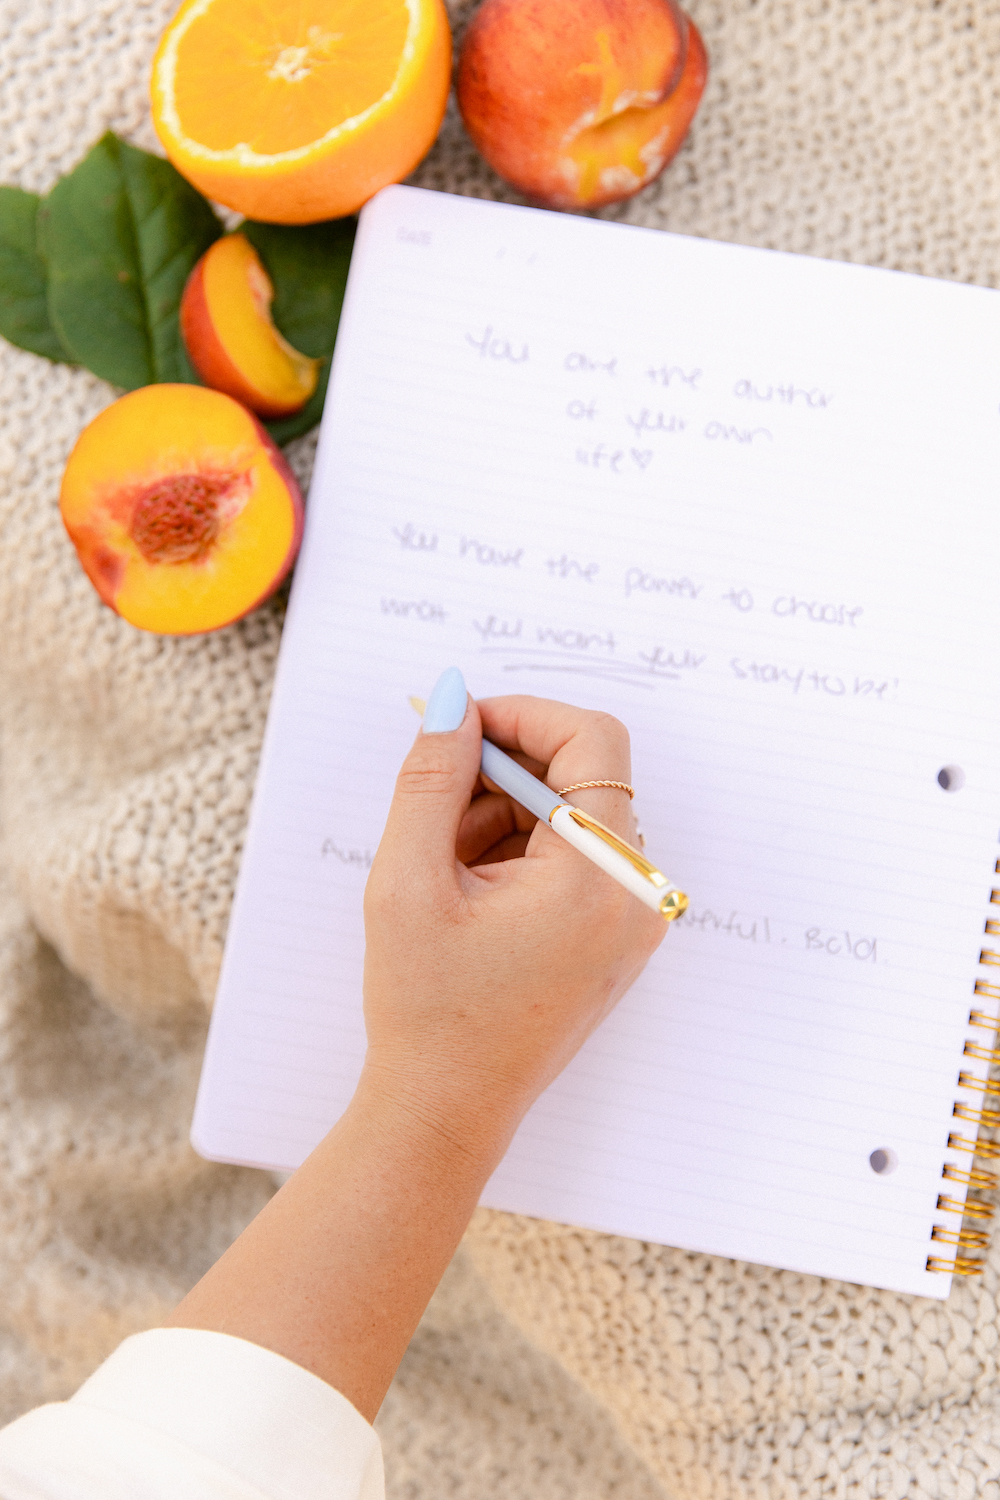 DATE
You are the author
of your own
life♡
You have the power to choose
what you want your story to be!
Bold.